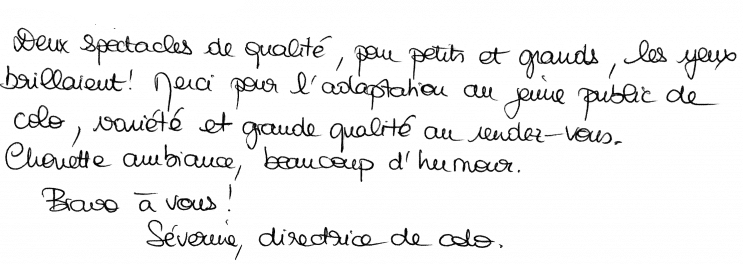 Deux spectacles de qualité, pour petits et grands, les yeux
brillaient! Merci pour l'adaptation au jeune public de
colo, variété et grande qualité au rendez-vous.
Chouette ambiance, beaucoup d'humour.
Bravo à vous!
Séverine, directrice de colo.